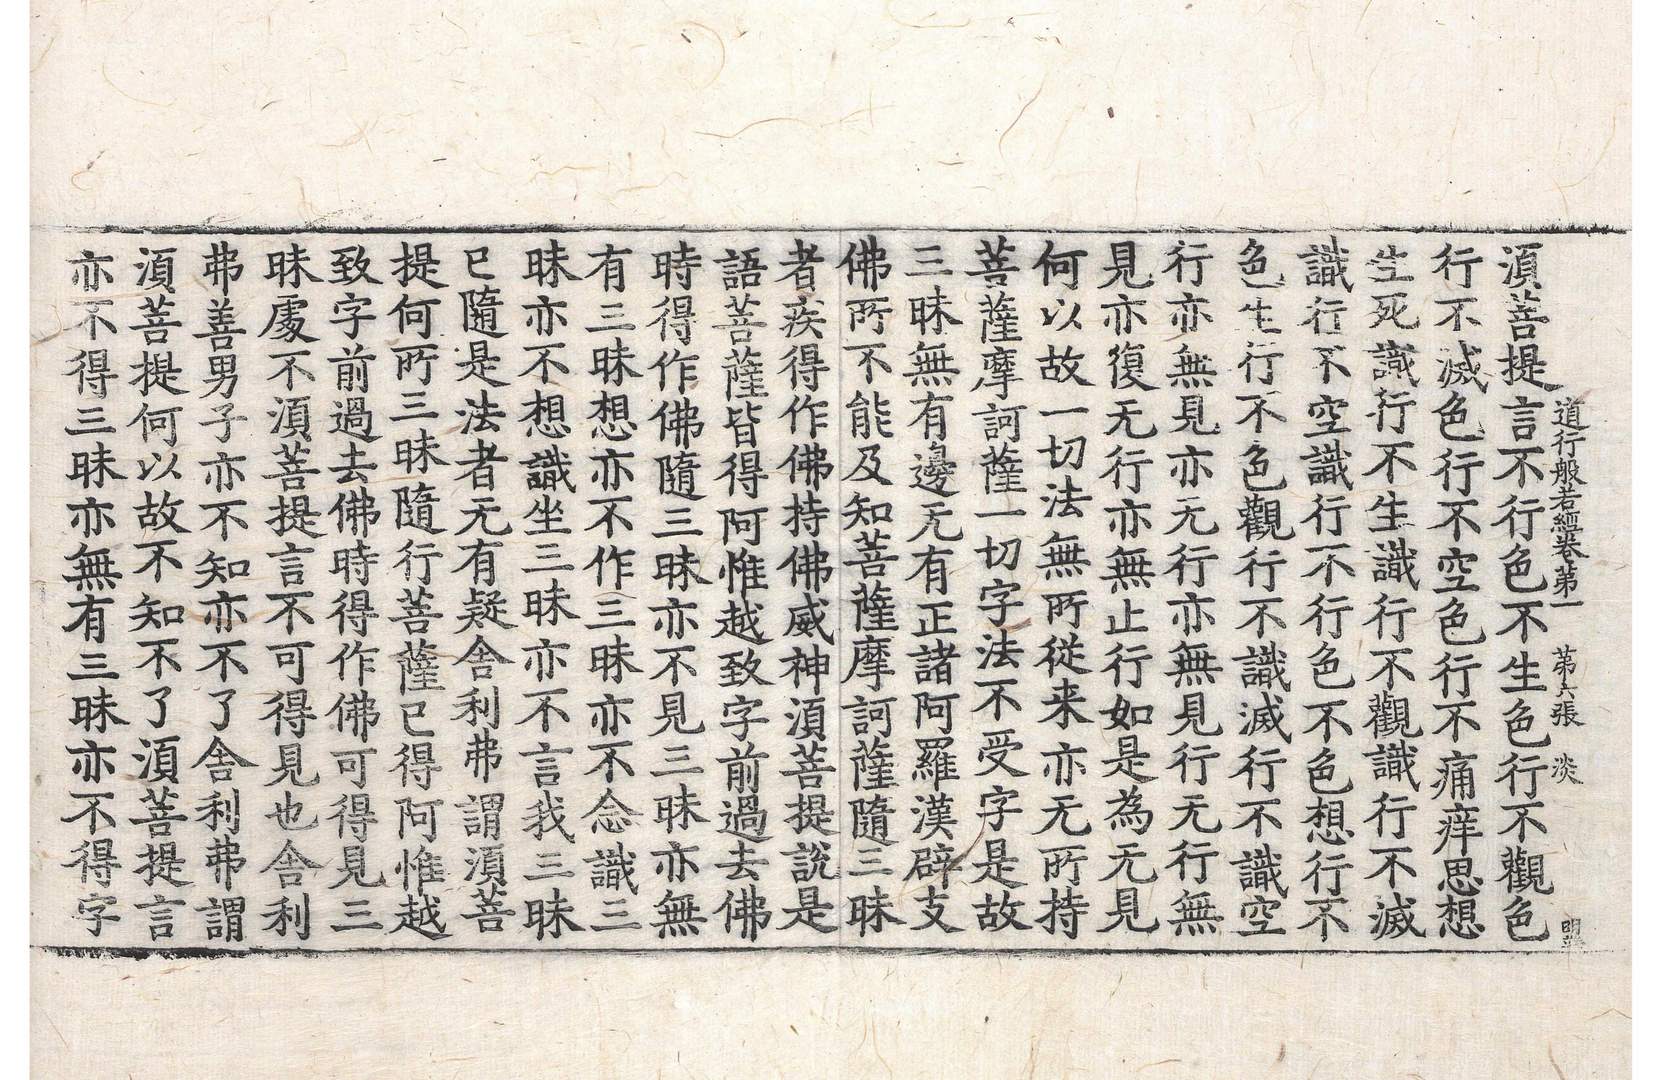 道行般若經卷第一 第六張 淡
湏菩提言不行色不生色行不觀色
行不滅色行不空色行不痛痒思想
生死識行不生識行不觀識行不滅
識行不空識行不行色不色想行不
色生行不色觀行不識滅行不識空
行亦無見亦无行亦無見行无行無
見亦復无行亦無止行如是為无見
何以故一切法無所從来亦无所持
菩薩摩訶薩一切字法不受字是故
三昧無有邊无有正諸阿羅漢辟支
佛所不能及知菩薩摩訶薩隨三昧
者疾得作佛持佛威神湏菩提說是
語菩薩皆得阿惟越致字前過去佛
時得作佛隨三昧亦不見三昧亦無
有三昧想亦不作三昧亦不念識三
昧亦不想識坐三昧亦不言我三昧
已隨是法者无有疑舍利弗謂湏菩
提何所三昧隨行菩薩已得阿惟越
致字前過去佛時得作佛可得見三
昧處不湏菩提言不可得見也舍利
弗善男子亦不知亦不了舍利弗謂
湏菩提何以故不知不了湏菩提言
亦不得三昧亦無有三昧亦不得字